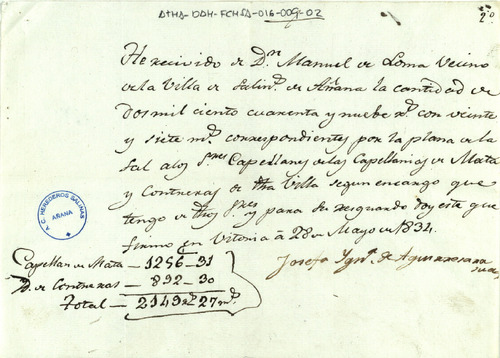 ATHA-DAH-FCHSA-016-009-02
2º
He recivido de Dn. Manuel de Loma Vecino
de la Villa de Salins. de Añana la cantidad de
Dos mil ciento cuarenta y nuebe rs. con veinte
y siete ms. correspondientes por la plana de la
Sal a los Sres Capellanes de las Capellanias de Mata
y Contreras de dha Villa segun encargo que
tengo de dhos Sres y para su resguardo doy este que
firmo en Vitoria á 28 de Mayo de 1834.
Josefa Ygna. de
Capellan de Mata — 1256 — 31
D. de Contreras — 892 — 30
Total — 2149 rs. 27 ms.
T.C. HEREDEROS SALINAS
AÑANA